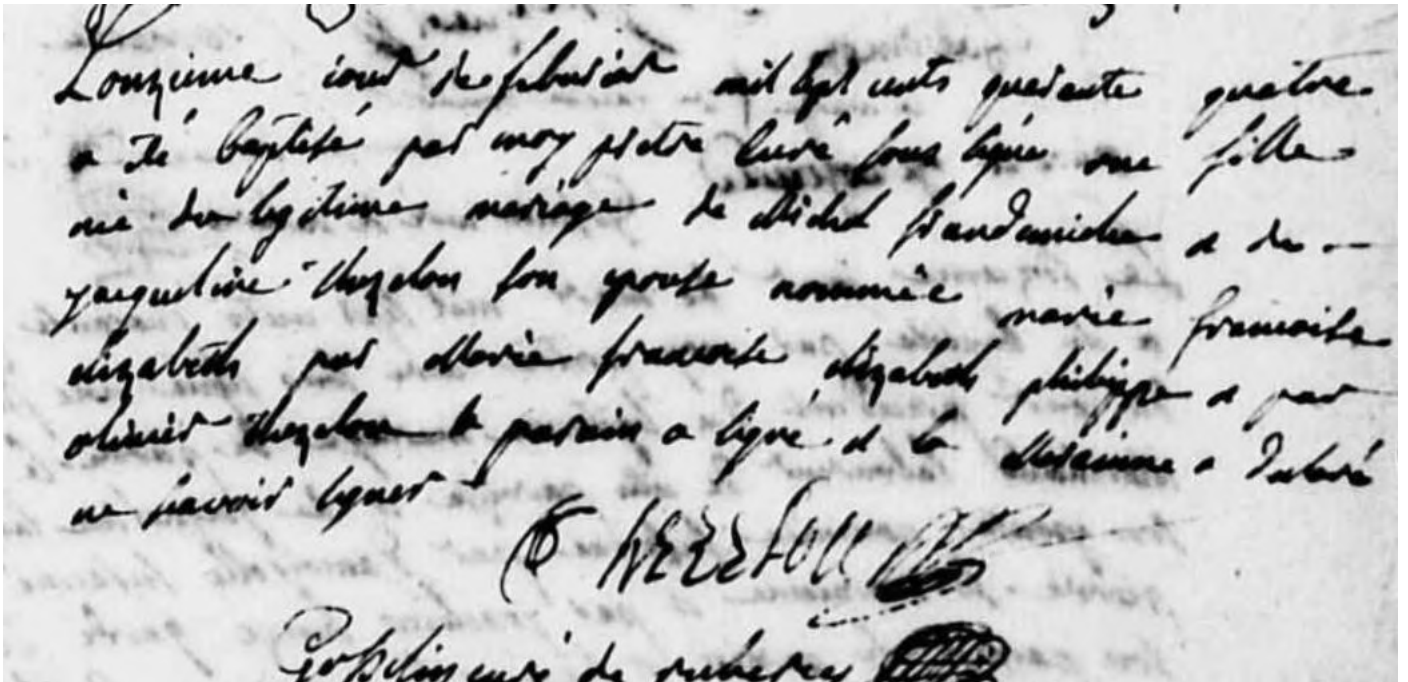 Lonzieme iour de febvrier mil sept cents quarante quatre
a Eté baptisé par moy pretre Curé sous signé une fille
née du legitime mariage de Michel grandamiche & de
jacqueline thezelou son epouse nommée marie francoise
elizabeth par Marie francoise elizabeth philippe & par
olivier thezelou le parain a signé & la Maraine a declaré
ne scavoir signer
curé de